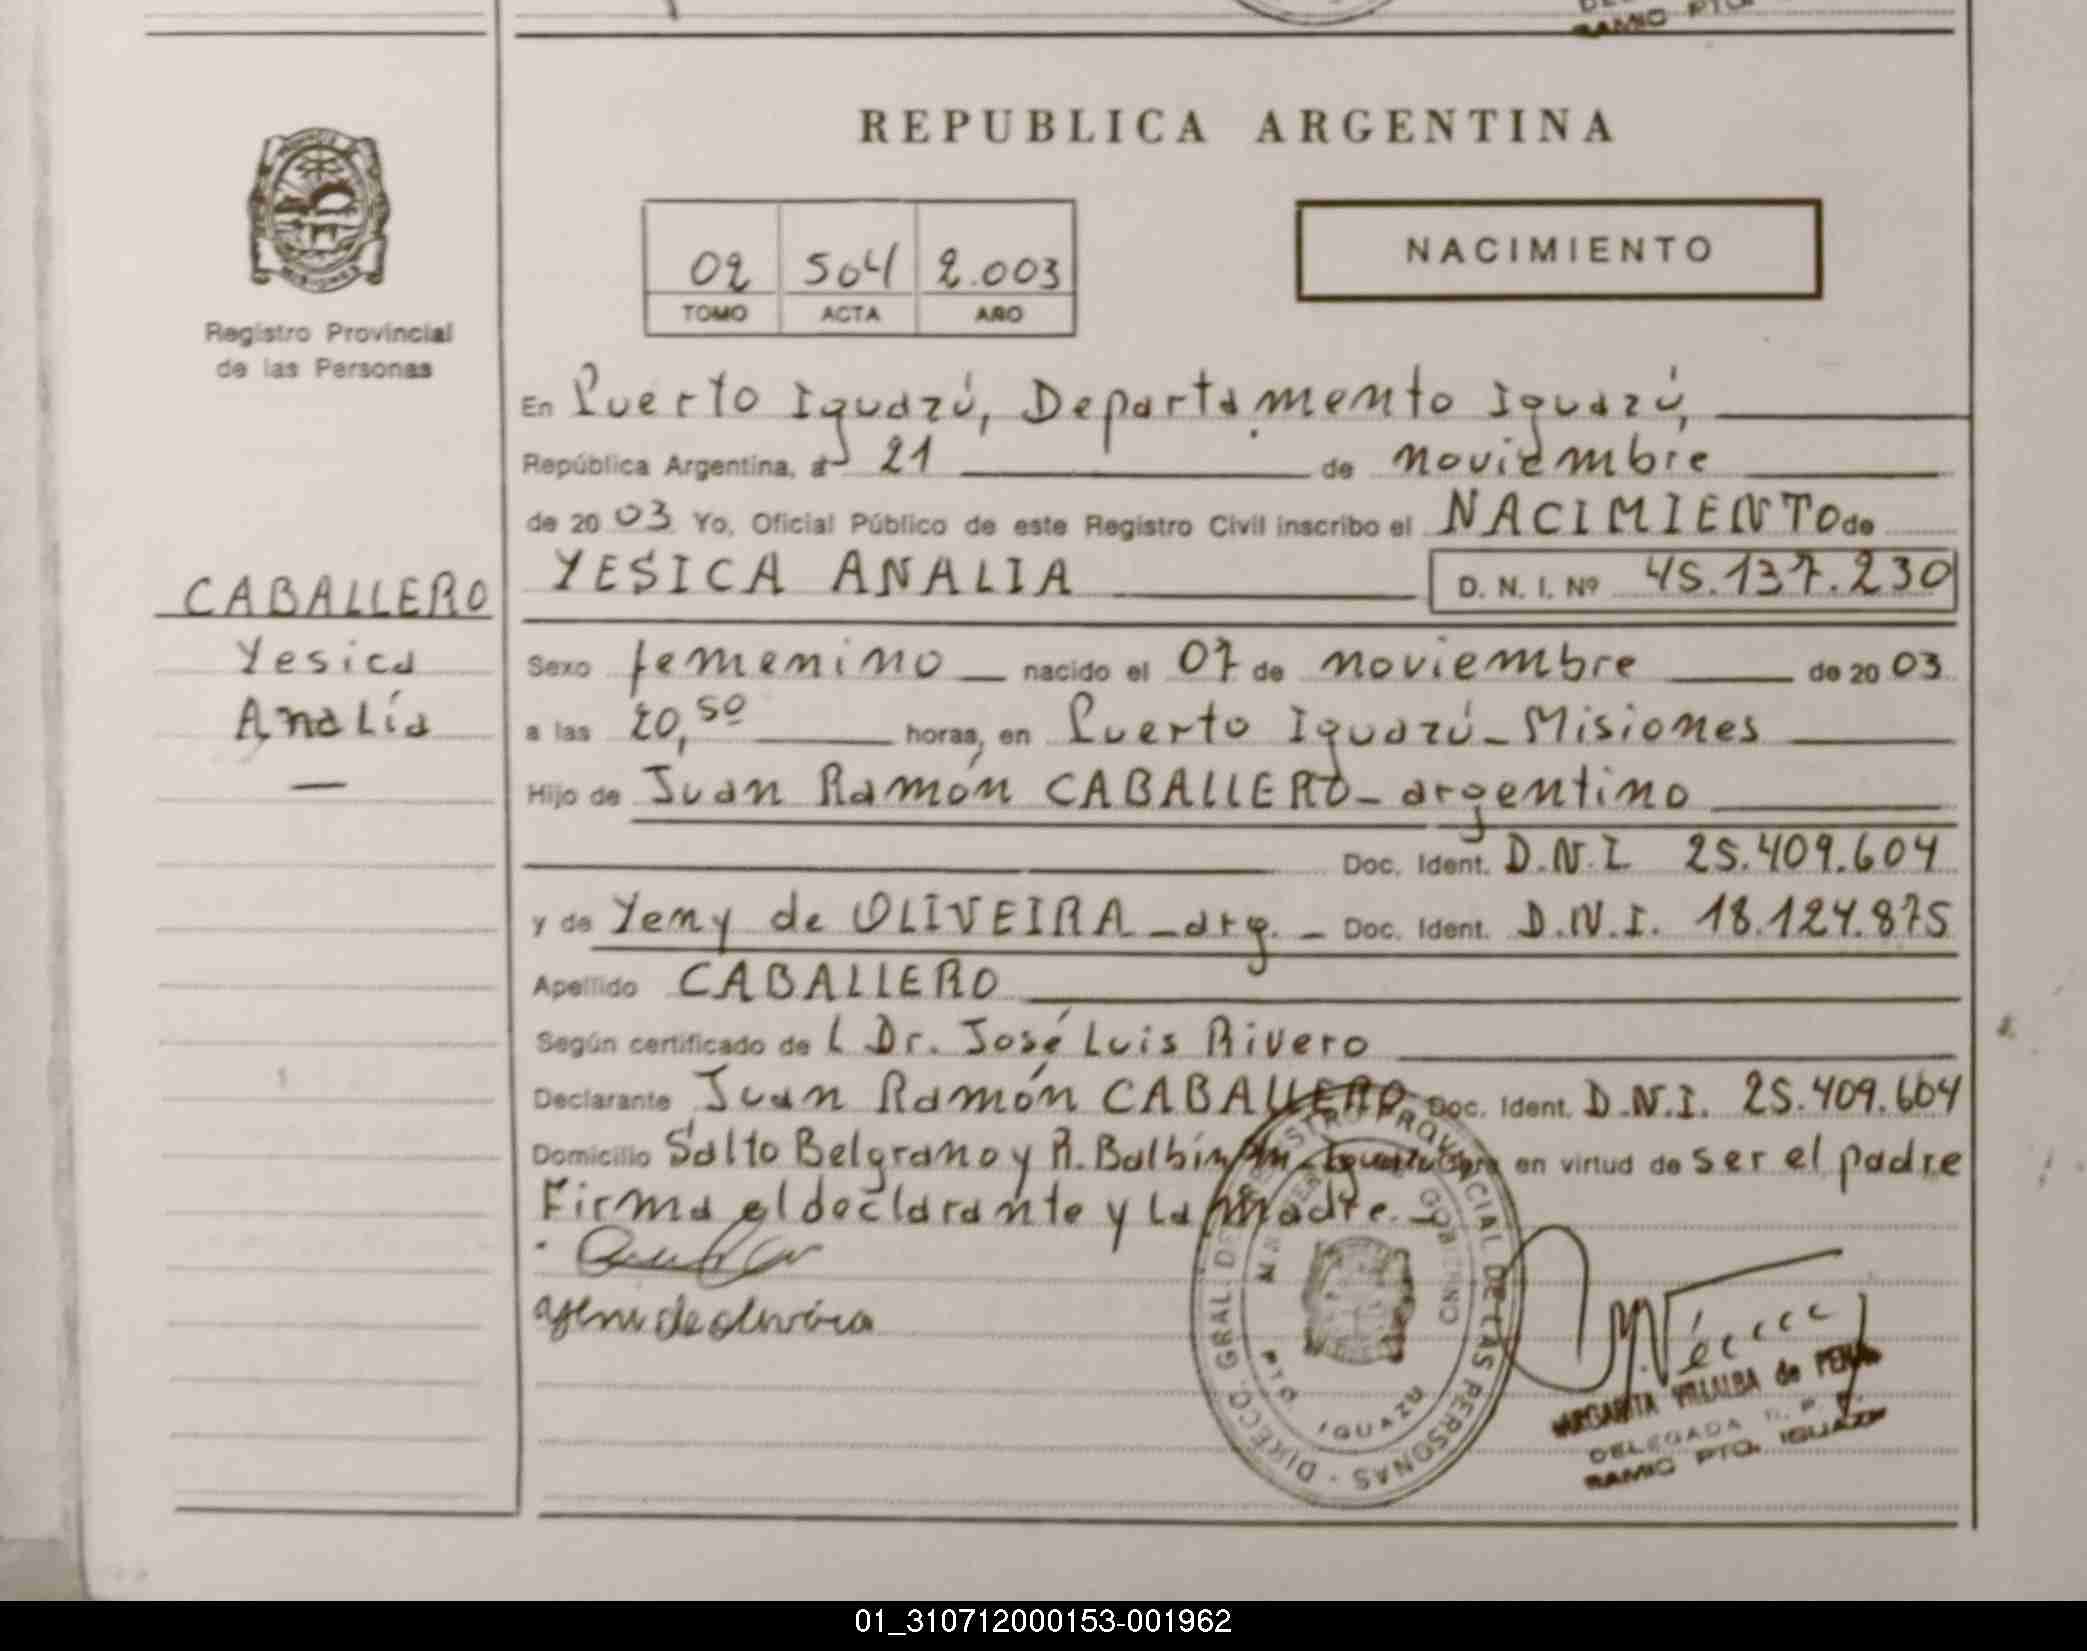 RAMIC PTO.
REPUBLICA ARGENTINA
NACIMIENTO
02 504 2.003
TOMO ACTA AÑO
Registro Provincial
de las Personas
En Puerto Iguazú, Departamento Iguazú,
República Argentina, a 21 de noviembre
de 20 03 Yo, Oficial Público de este Registro Civil inscribo el NACIMIENTO de
YESICA ANALIA D. N. I. Nº 45.137.230
CABALLERO
Yesica
Analía
Sexo femenino nacido el 07 de noviembre de 20 03
a las 20,50 horas, en Puerto Iguazú - Misiones
Hijo de Juan Ramón CABALLERO - argentino
Doc. Ident. D.N.I. 25.409.604
y de Yeny de OLIVEIRA - arg. - Doc. Ident. D.N.I. 18.124.875
Apellido CABALLERO
Según certificado de l Dr. José Luis Rivero
Declarante Juan Ramón CABALLERO Doc. Ident. D.N.I. 25.409.604
Domicilio Salto Belgrano y R. Balbín en virtud de ser el padre
Firma el declarante y la madre. -
yeni de oliveira
DIRECC. GRAL. DE REGISTRO PROVINCIAL DE LAS PERSONAS -
GOBIERNO
PTO. IGUAZU
MARGARITA VILLALBA de PENA
DELEGADA R. P.
RAMIC PTO. IGUAZU
01_310712000153-001962